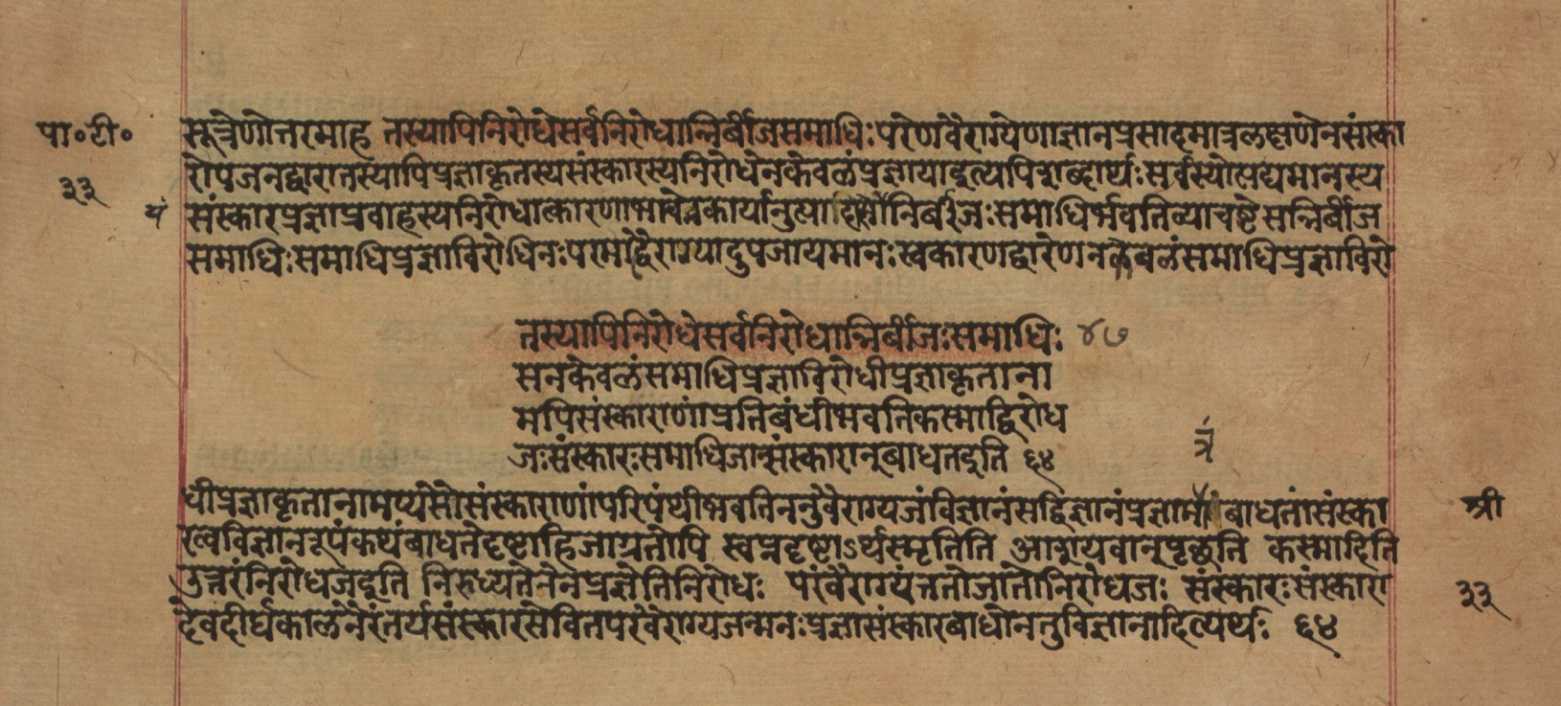 पा॰टी॰
३३
सूत्रेणोत्तरमाह तस्यापिनिरोधेसर्वनिरोधान्निर्बीजसमाधिःपरेणवैराग्येणाज्ञानप्रसादमात्रलक्षणेनसंस्का
रोपजनद्वारातस्यापिप्रज्ञाकृतस्यसंस्कारस्यनिरोधेनकेवळंप्रज्ञायाइत्यपिशब्दार्थःसर्वस्योत्पद्यमानस्य
यं
संस्कारप्रज्ञाप्रवाहस्यनिरोधात्कारणाभावेनकार्यानुत्पा निर्बीजःसमाधिर्भवतिव्याचष्टेसन्निर्बीज
समाधिःसमाधिप्रज्ञाविरोधिनःपरमाद्वैराग्यादुपजायमानःस्वकारणद्वारेणनकेवलंसमाधिप्रज्ञाविरो
तस्यापिनिरोधेसर्वनिरोधान्निर्बीजःसमाधिः ४७
सनकेवळंसमाधिप्रज्ञाविरोधीप्रज्ञाकृताना
मपिसंस्काराणांप्रतिबंधीभवतिकस्माद्विरोध
जःसंस्कारःसमाधिजान्संस्कारान्बाधतइति ६४
धीप्रज्ञाकृतानामप्यंसौसंस्काराणांपरिपंथीभवतिननुवैराग्यजंविज्ञानंसद्विज्ञानंप्रज्ञामात्रं बाधतांसंस्का
त्रं
श्री
रत्वविज्ञानरूपंकथंबाधतेदृष्टाहिजाग्रतोपि स्वप्नदृष्टाऽर्थस्मृतिति आशयवान्पृछति कस्मादिति
उत्तरंनिरोधजइति निरुध्यतेनेनप्रज्ञेतिनिरोधः परंवैराग्यंततोजातोनिरोधजः संस्कारःसंस्कारा
३३
देवदीर्घकाळनैरंतर्यसंस्कारसेवितपरवैराग्यजन्मनःप्रज्ञासंस्कारबाधोनतुविज्ञानादित्यर्थः ६४